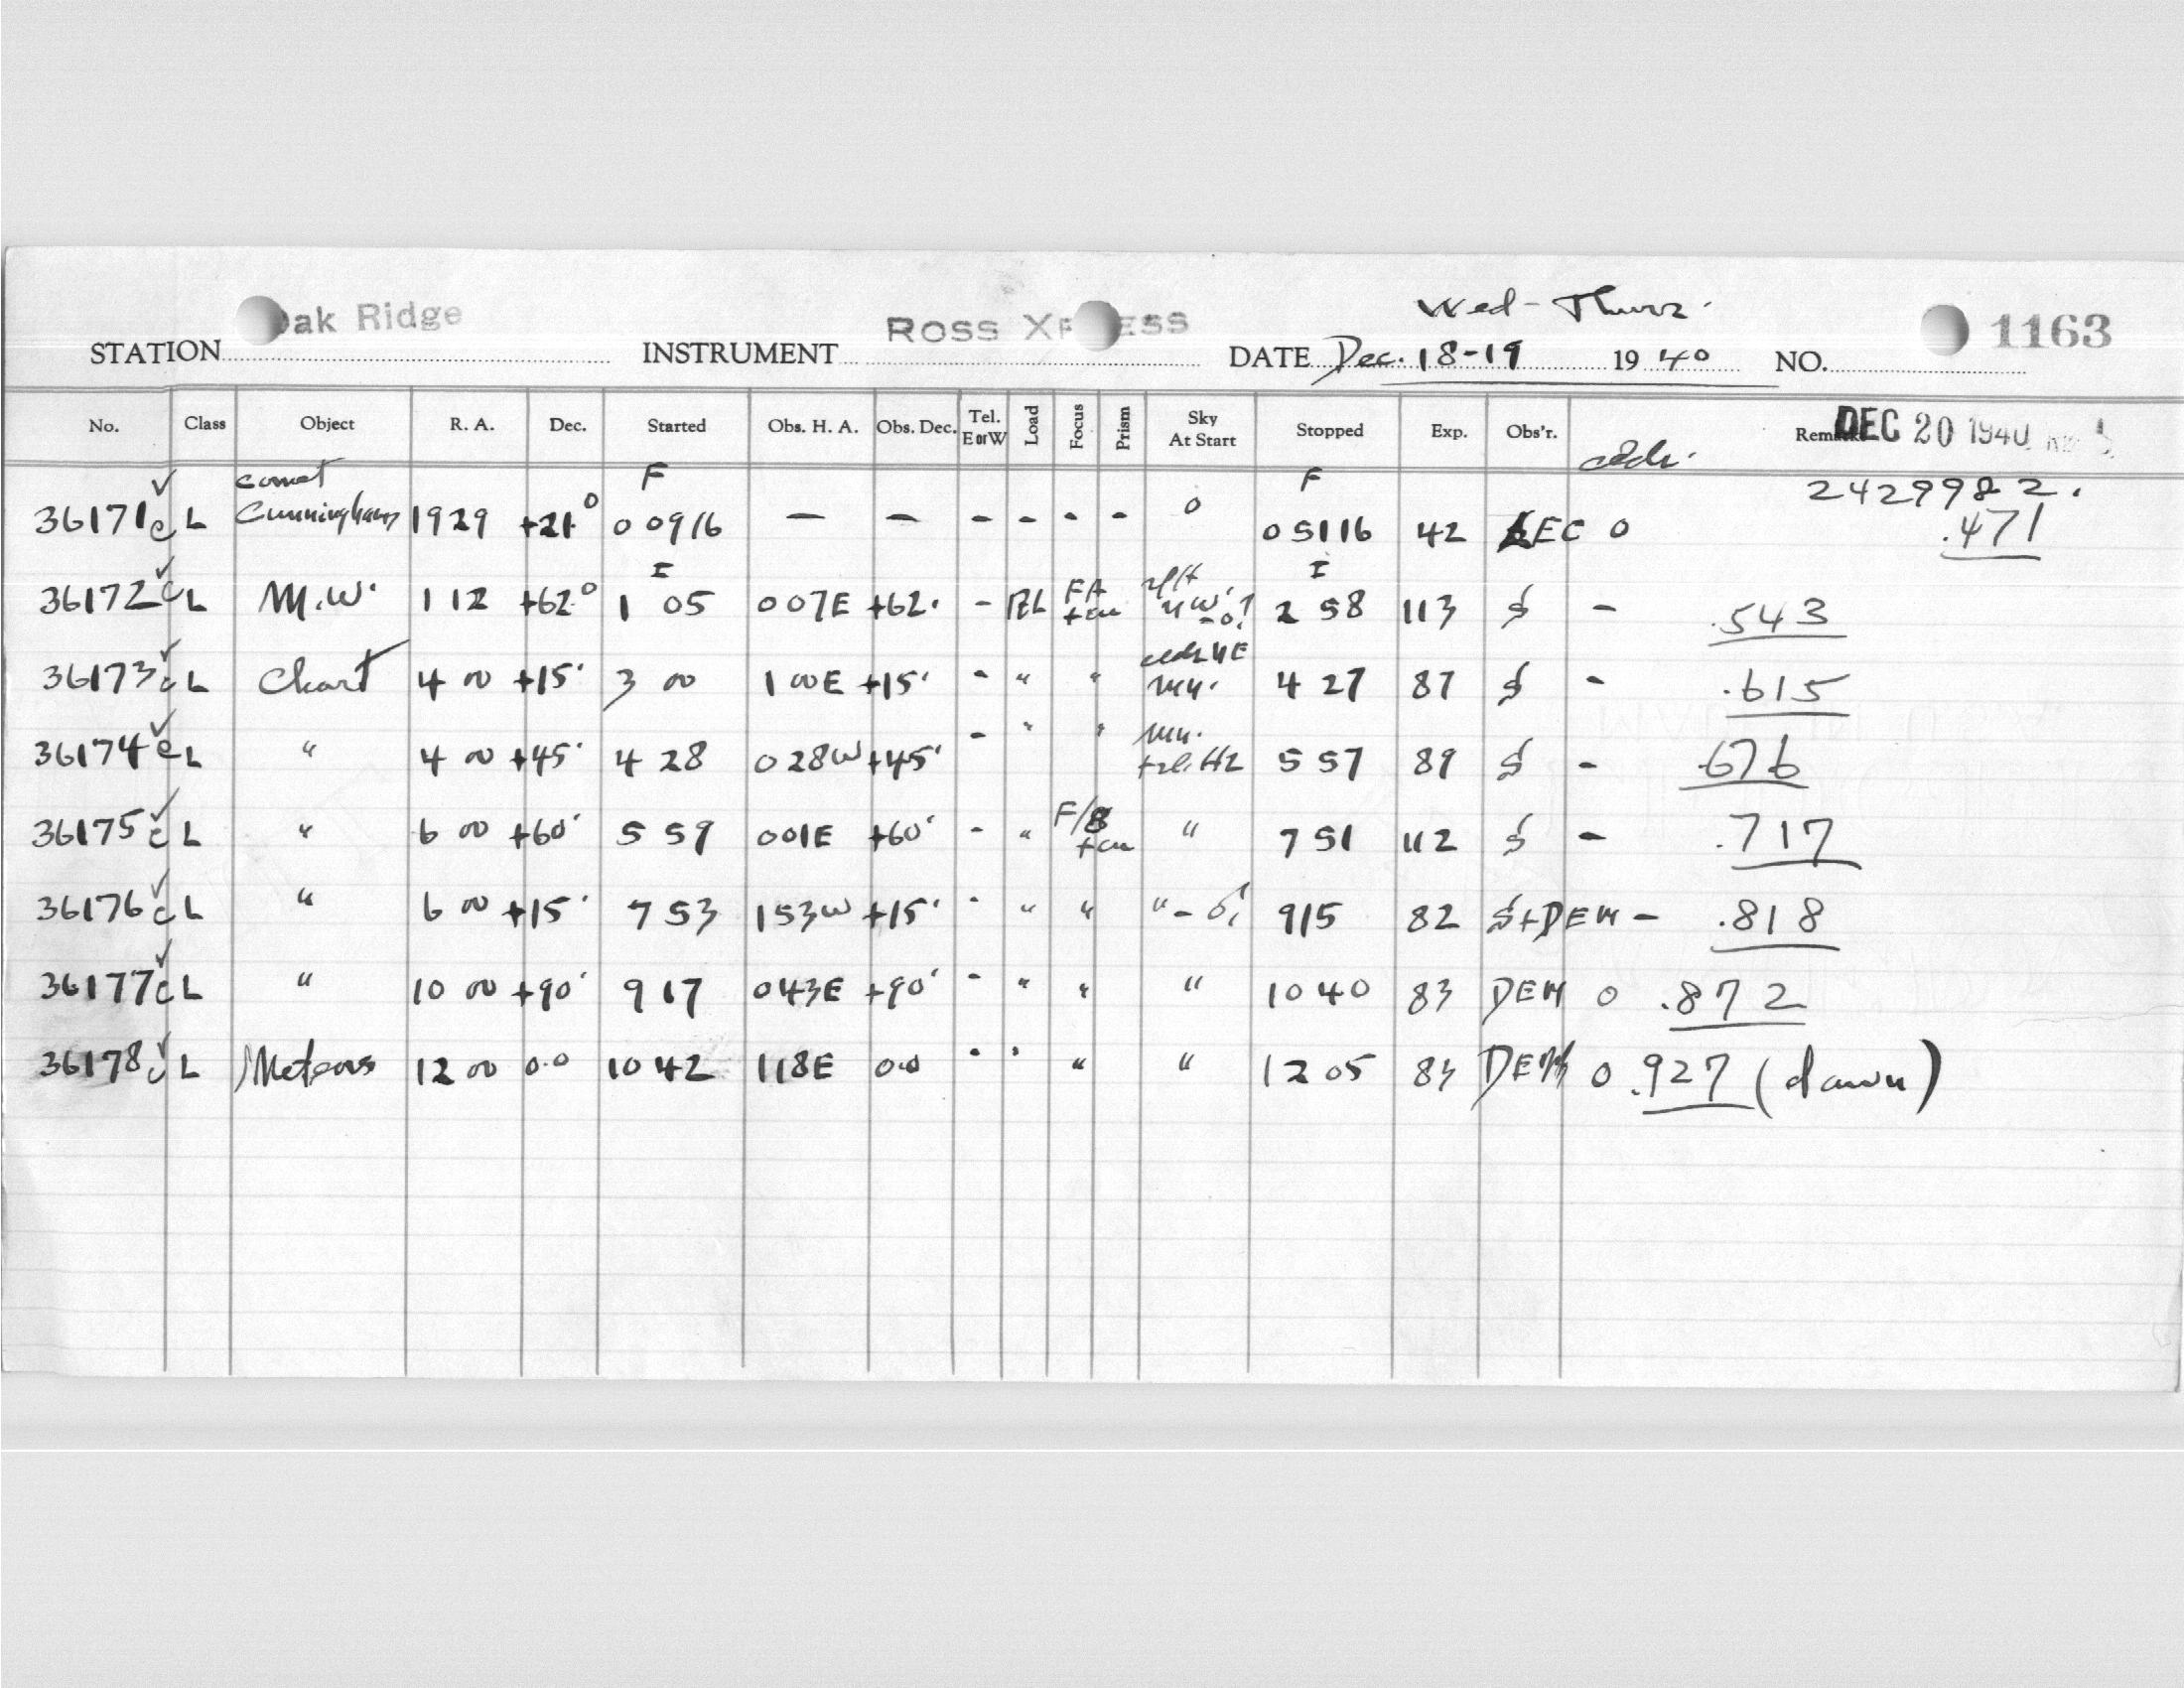 Wed - Thurs.
STATION Oak Ridge INSTRUMENT ROSS XPRESS DATE Dec. 18-19 1940 NO. 1163
No. Class Object R. A. Dec. Started Obs. H. A. Obs. Dec. Tel. E or W Load Focus Prism Sky At Start Stopped Exp. Obs'r. Remarks DEC 20 1940
comet F F 2429982.
36171c L Cunningham 1929 +21° 0 0916 — — - - - - 0 0 5116 42 LEC 0 .471
I I
36172c L M.W. 1 12 +62° 1 05 007E +62. - BL FA 2 58 113 S - .543
36173c L Chart 4 00 +15° 3 00 1 00E +15° - " " 4 27 87 S - .615
36174c L " 4 00 +45° 4 28 028W +45° - " " 5 57 89 S - .676
36175c L " 6 00 +60° 5 59 001E +60° - " F/8 " 7 51 112 S - .717
36176c L " 6 00 +15° 7 53 153W +15° - " " " - 915 82 S+DEM - .818
36177c L " 10 00 +90° 9 17 043E +90° - " " " 10 40 83 DEM 0 .872
36178c L Meteors 12 00 0.0 10 42 118E 0.0 - " " " 12 05 83 DEM 0 .927 (dawn)